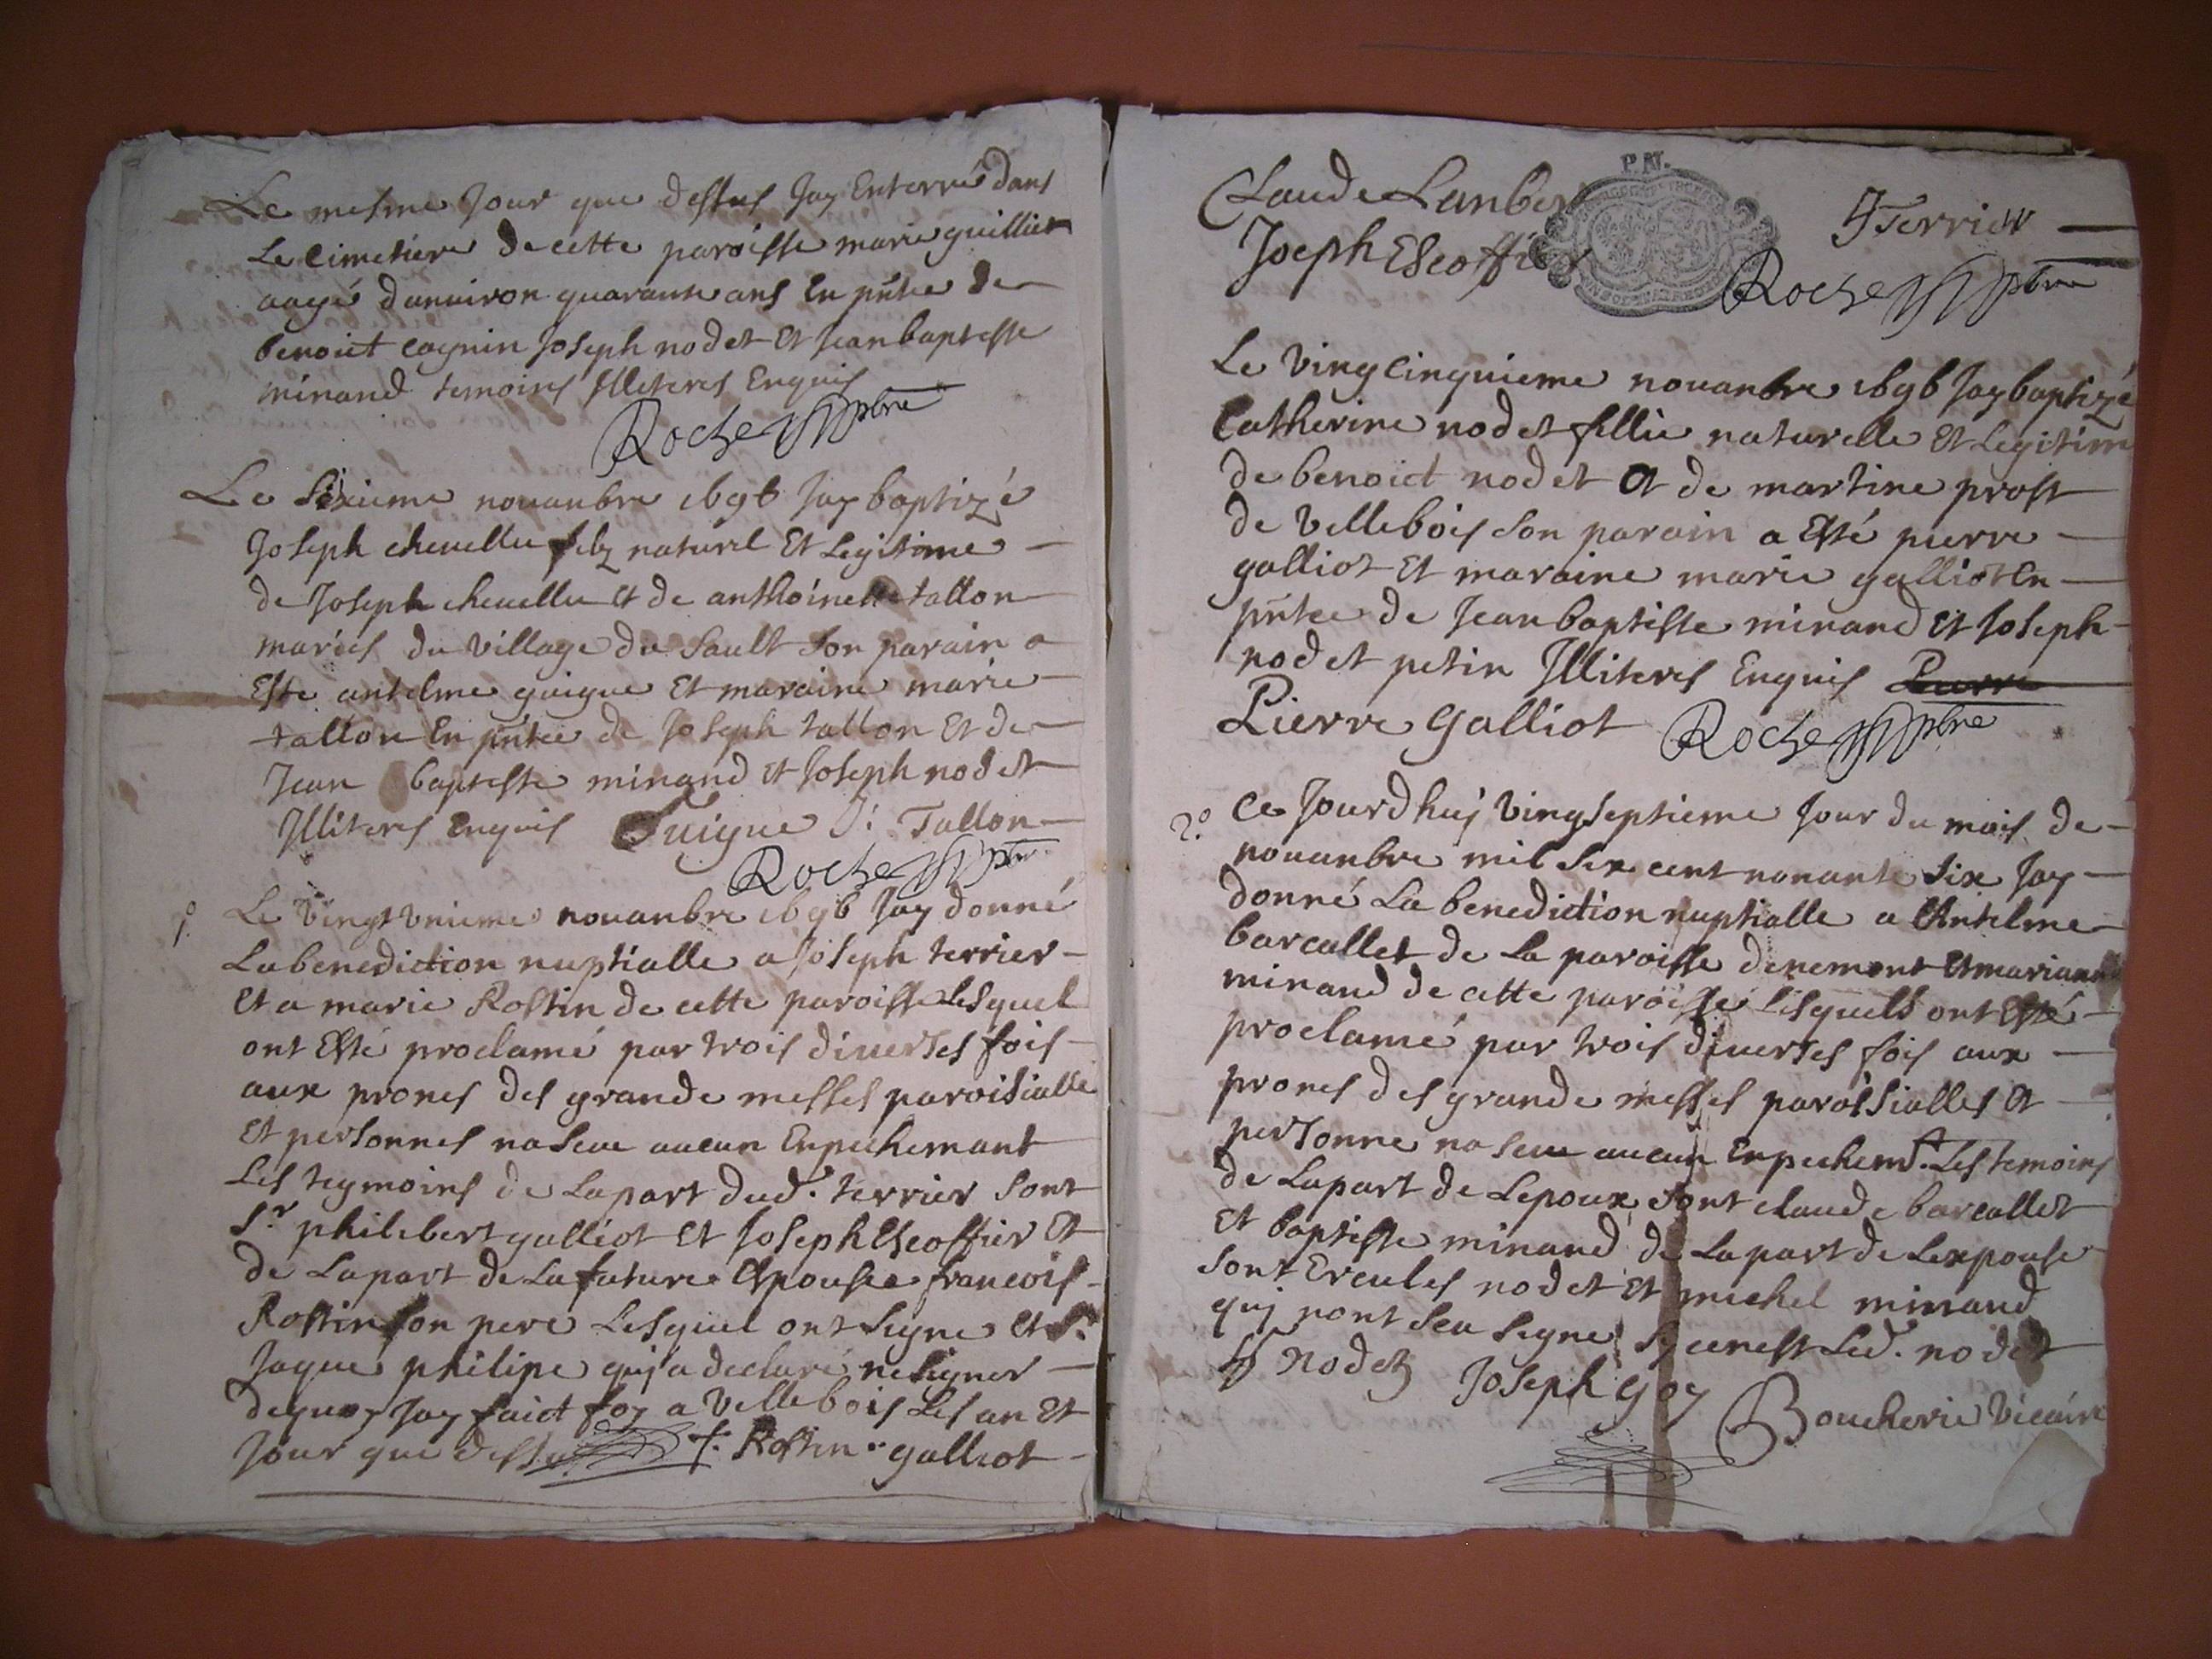 Le mesme Jour que dessus Jay Enterré dans
Le Cimetiere de cette paroisse marie guilliet
aagé danuiron quarante ans En pñtce de
benoict cagnin Joseph nodet Et Jean baptiste
minand temoins Illiteres Enquis
Roche ptre
Le Sixieme nouanbre 1696 Jay baptizé
Joseph cheuellu filz naturel Et Legitime
de Joseph cheuellu et de anthoinette tallon
mariés du village du Sault Son parain a
Este antelme guigue Et maraine marie
tallon En pñtce de Joseph tallon Et de
Jean baptiste minand et Joseph nodet
Illiteres Enquis Guigue J: Tallon
Roche ptre
1.º Le vingt vnieme nouanbre 1696 Jay donné
La benediction nuptialle a Joseph terrier
Et a marie Rostin de cette paroisse Lesquel
ont Esté proclamé par trois diuerses fois
aux prones des grande messes paroisialle
Et personnes na sceu aucun Enpechemant
Les teymoins de La part dud. terrier sont
Sr. philibert galliot Et Joseph Escoffier Et
de La part de La future Espouse francois
Rostin son pere Lesquel ont signe Et Sr.
Jaque philipe qui a declaré ne signer
dequoy Jay faict foy a Vellebois Les an Et
Jour que dessus f. Rostin galliot
Claude Lanber
Joseph Escoffier
P.N.
J Terrier
Roche pbre
Le ving cinquieme nouanbre 1696 Jay baptizé
Catherine nodet fillie naturelle Et Legitim
de benoict nodet Et de martine prost
de Vellebois Son parain a Esté pierre
galliot Et maraine marie galliot En
pñtce de Jean baptiste minand Et Joseph
nodet petin Illiteres Enquis Pierre
Pierre Galliot Roche pbre
2.º Ce Jourdhuy vingseptieme Jour du mois de
nouanbre mil six cent nonante six Jay
donné La benediction nuptialle a Antelme
barcallet de La paroisse denemont Et marianne
minand de cette paroisse Lesquels ont Esté
proclamé par trois diuerses fois aux
prones des grande messes paroissialles Et
personne na sceu aucun Enpechemt. Les temoins
de La part de Lepoux sont claude barcallet
Et baptiste minand de La part de Lexpouse
sont Ercules nodet Et michel minand
qui nont sceu signe Sy cenest Led. nodet
H nodet Joseph goy
Boucherie vicaire